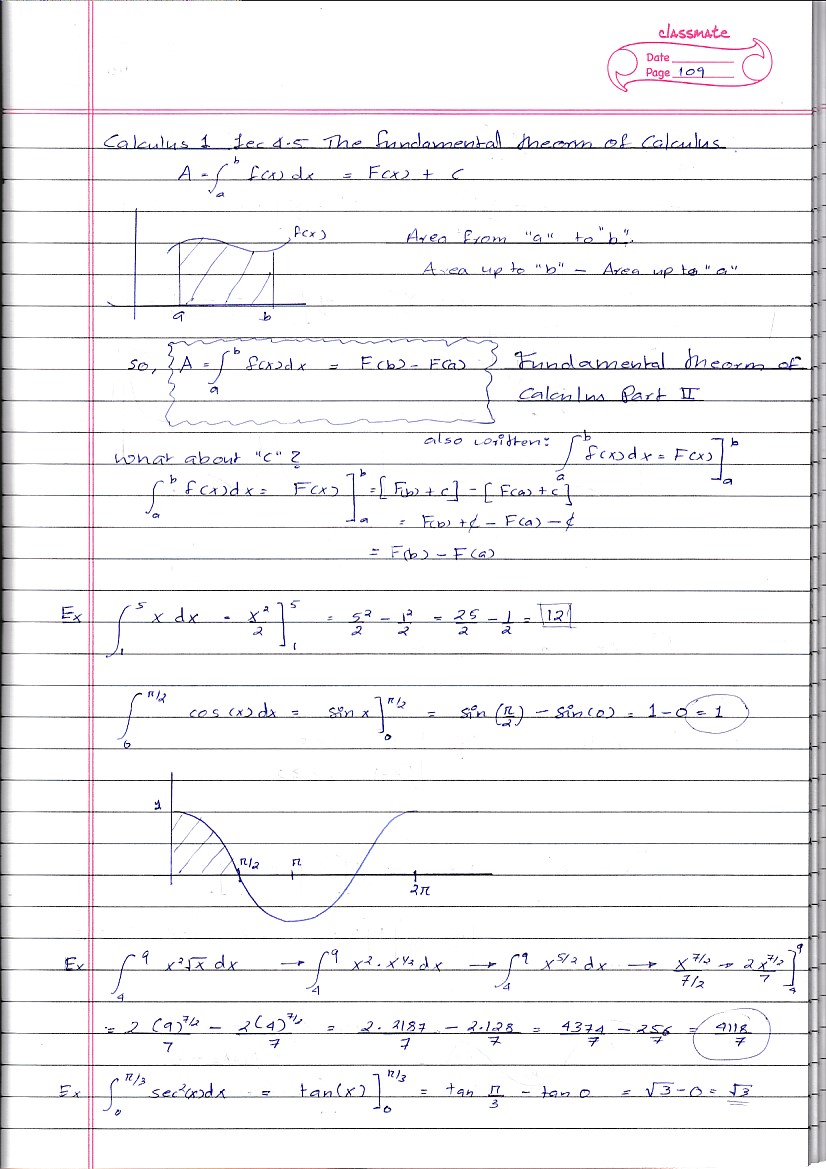 classmate
Date
Page 109
Calculus 1 Lec 4.5 The Fundamental theorm of Calculus
A = ∫_a^b f(x) dx = F(x) + C
f(x)
Area from "a" to "b".
Area up to "b" - Area up to "a"
a b
so, A = ∫_a^b f(x)dx = F(b) - F(a) Fundamental theorm of
Calculus Part II
What about "C" ? also written: ∫_a^b f(x)dx = F(x)]_a^b
∫_a^b f(x)dx = F(x)]_a^b = [F(b) + C] - [F(a) + C]
= F(b) + C - F(a) - C
= F(b) - F(a)
Ex ∫_1^5 x dx = x²/2]_1^5 = 5²/2 - 1²/2 = 25/2 - 1/2 = 12
∫_0^{π/2} cos(x)dx = sin x]_0^{π/2} = sin(π/2) - sin(0) = 1 - 0 = 1
1
π/2 π
2π
Ex ∫_4^9 x²√x dx → ∫_4^9 x² · x^{1/2} dx → ∫_4^9 x^{5/2} dx → x^{7/2}/(7/2) → 2x^{7/2}/7]_4^9
= 2(9)^{7/2}/7 - 2(4)^{7/2}/7 = 2·2187/7 - 2·128/7 = 4374/7 - 256/7 = 4118/7
Ex ∫_0^{π/3} sec²(x)dx = tan(x)]_0^{π/3} = tan π/3 - tan 0 = √3 - 0 = √3